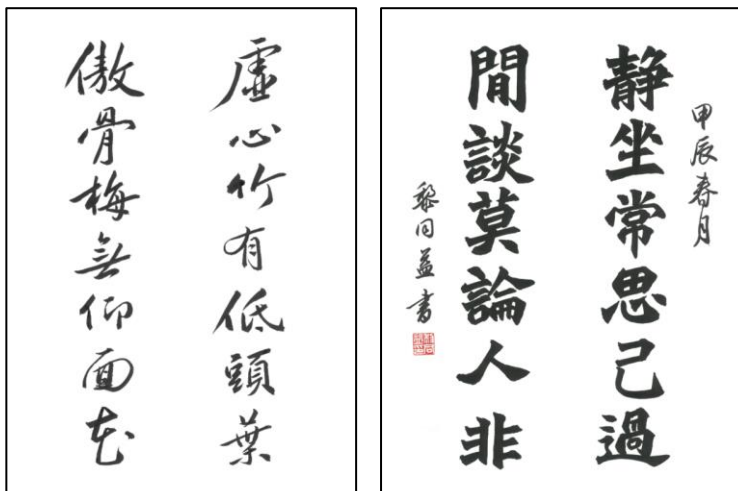 虛心竹有低頭葉
傲骨梅無仰面花
甲辰春月
静坐常思己過
閒談莫論人非
黎同益書